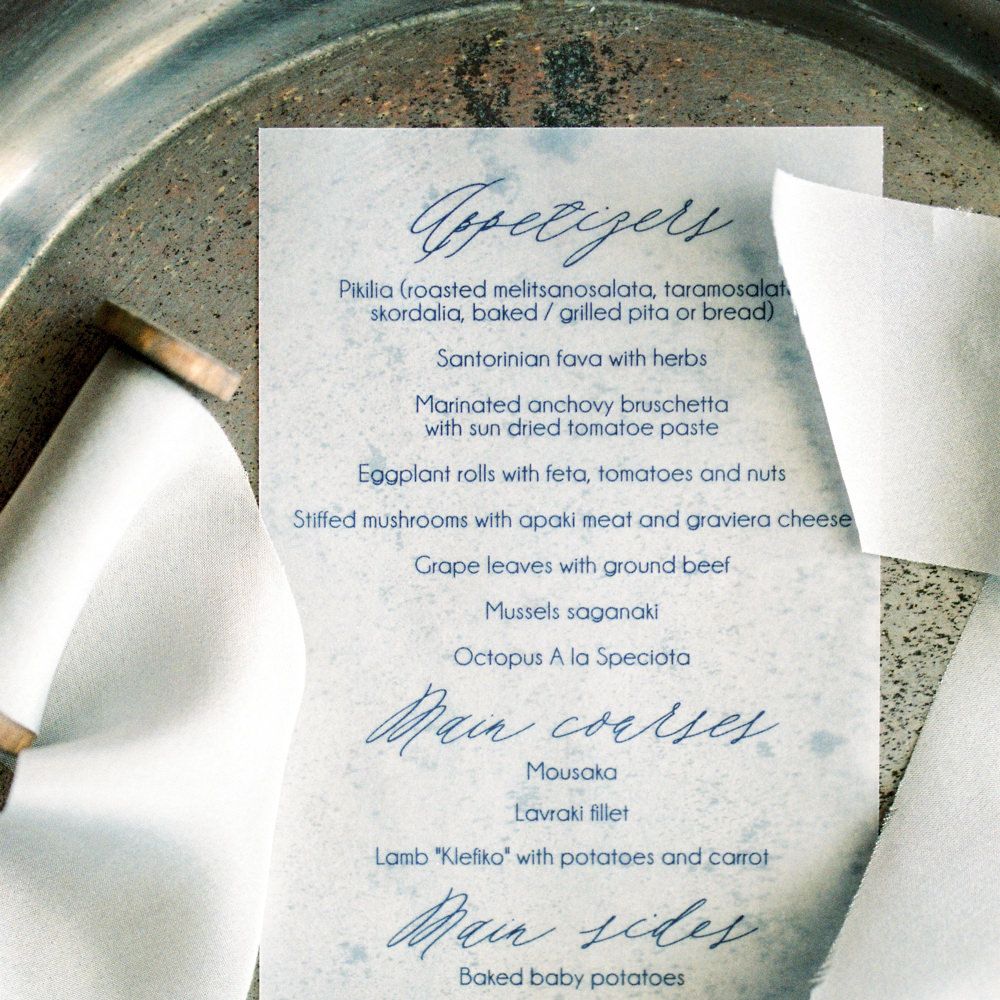 Appetizers
Pikilia (roasted melitsanosalata, taramosalata
skordalia, baked / grilled pita or bread)
Santorinian fava with herbs
Marinated anchovy bruschetta
with sun dried tomatoe paste
Eggplant rolls with feta, tomatoes and nuts
Stiffed mushrooms with apaki meat and graviera cheese
Grape leaves with ground beef
Mussels saganaki
Octopus A la Speciota
Main courses
Mousaka
Lavraki fillet
Lamb "Klefiko" with potatoes and carrot
Main sides
Baked baby potatoes